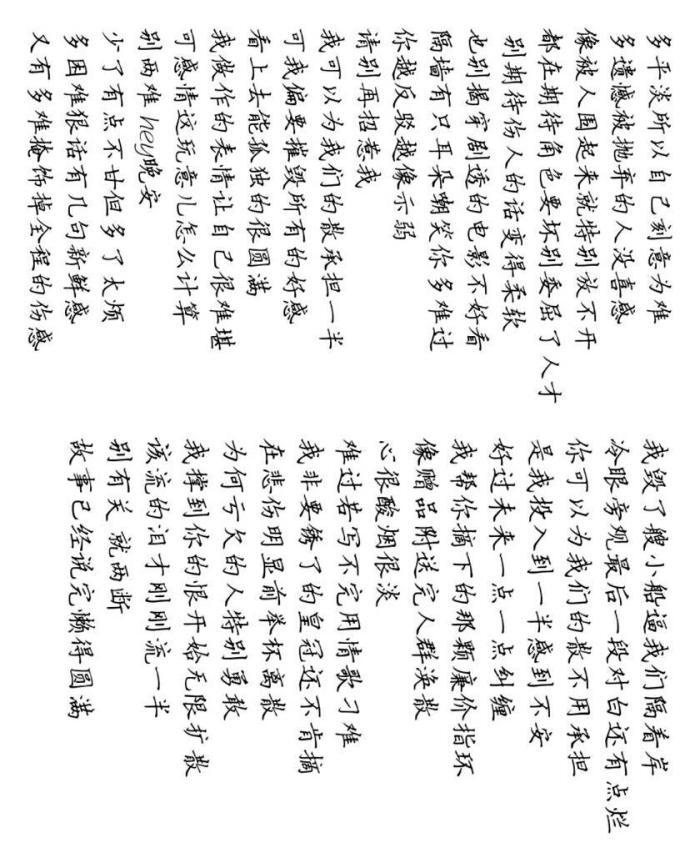 多平淡所以自己刻意为难
多遗憾被抛弃的人没喜感
像被人围起来就特别放不开
都在期待角色要坏别委屈了人才
别期待伤人的话变得柔软
也别揭穿剧透的电影不好看
隔墙有只耳朵嘲笑你多难过
你越反驳越像示弱
请别再招惹我
我可以为我们的散承担一半
可我偏要摧毁所有的好感
看上去能孤独的很圆满
我做作的表情让自己很难堪
可感情这玩意儿怎么计算
别两难 hey晚安
少了有点不甘但多了太烦
多困难狠话有几句新鲜感
又有多难掩饰掉全程的伤感
我毁了艘小船逼我们隔着岸
冷眼旁观最后一段对白还有点烂
你可以为我们的散不用承担
是我投入到一半感到不安
好过未来一点一点纠缠
我帮你摘下的那颗廉价指环
像赠品附送完人群涣散
心很酸烟很淡
难过若写不完用情歌刁难
我非要锈了的皇冠还不肯摘
在悲伤明显前举杯离散
为何亏欠的人特别勇敢
我撑到你的恨开始无限扩散
该流的泪才刚刚流一半
别有关 就两断
故事已经说完懒得圆满